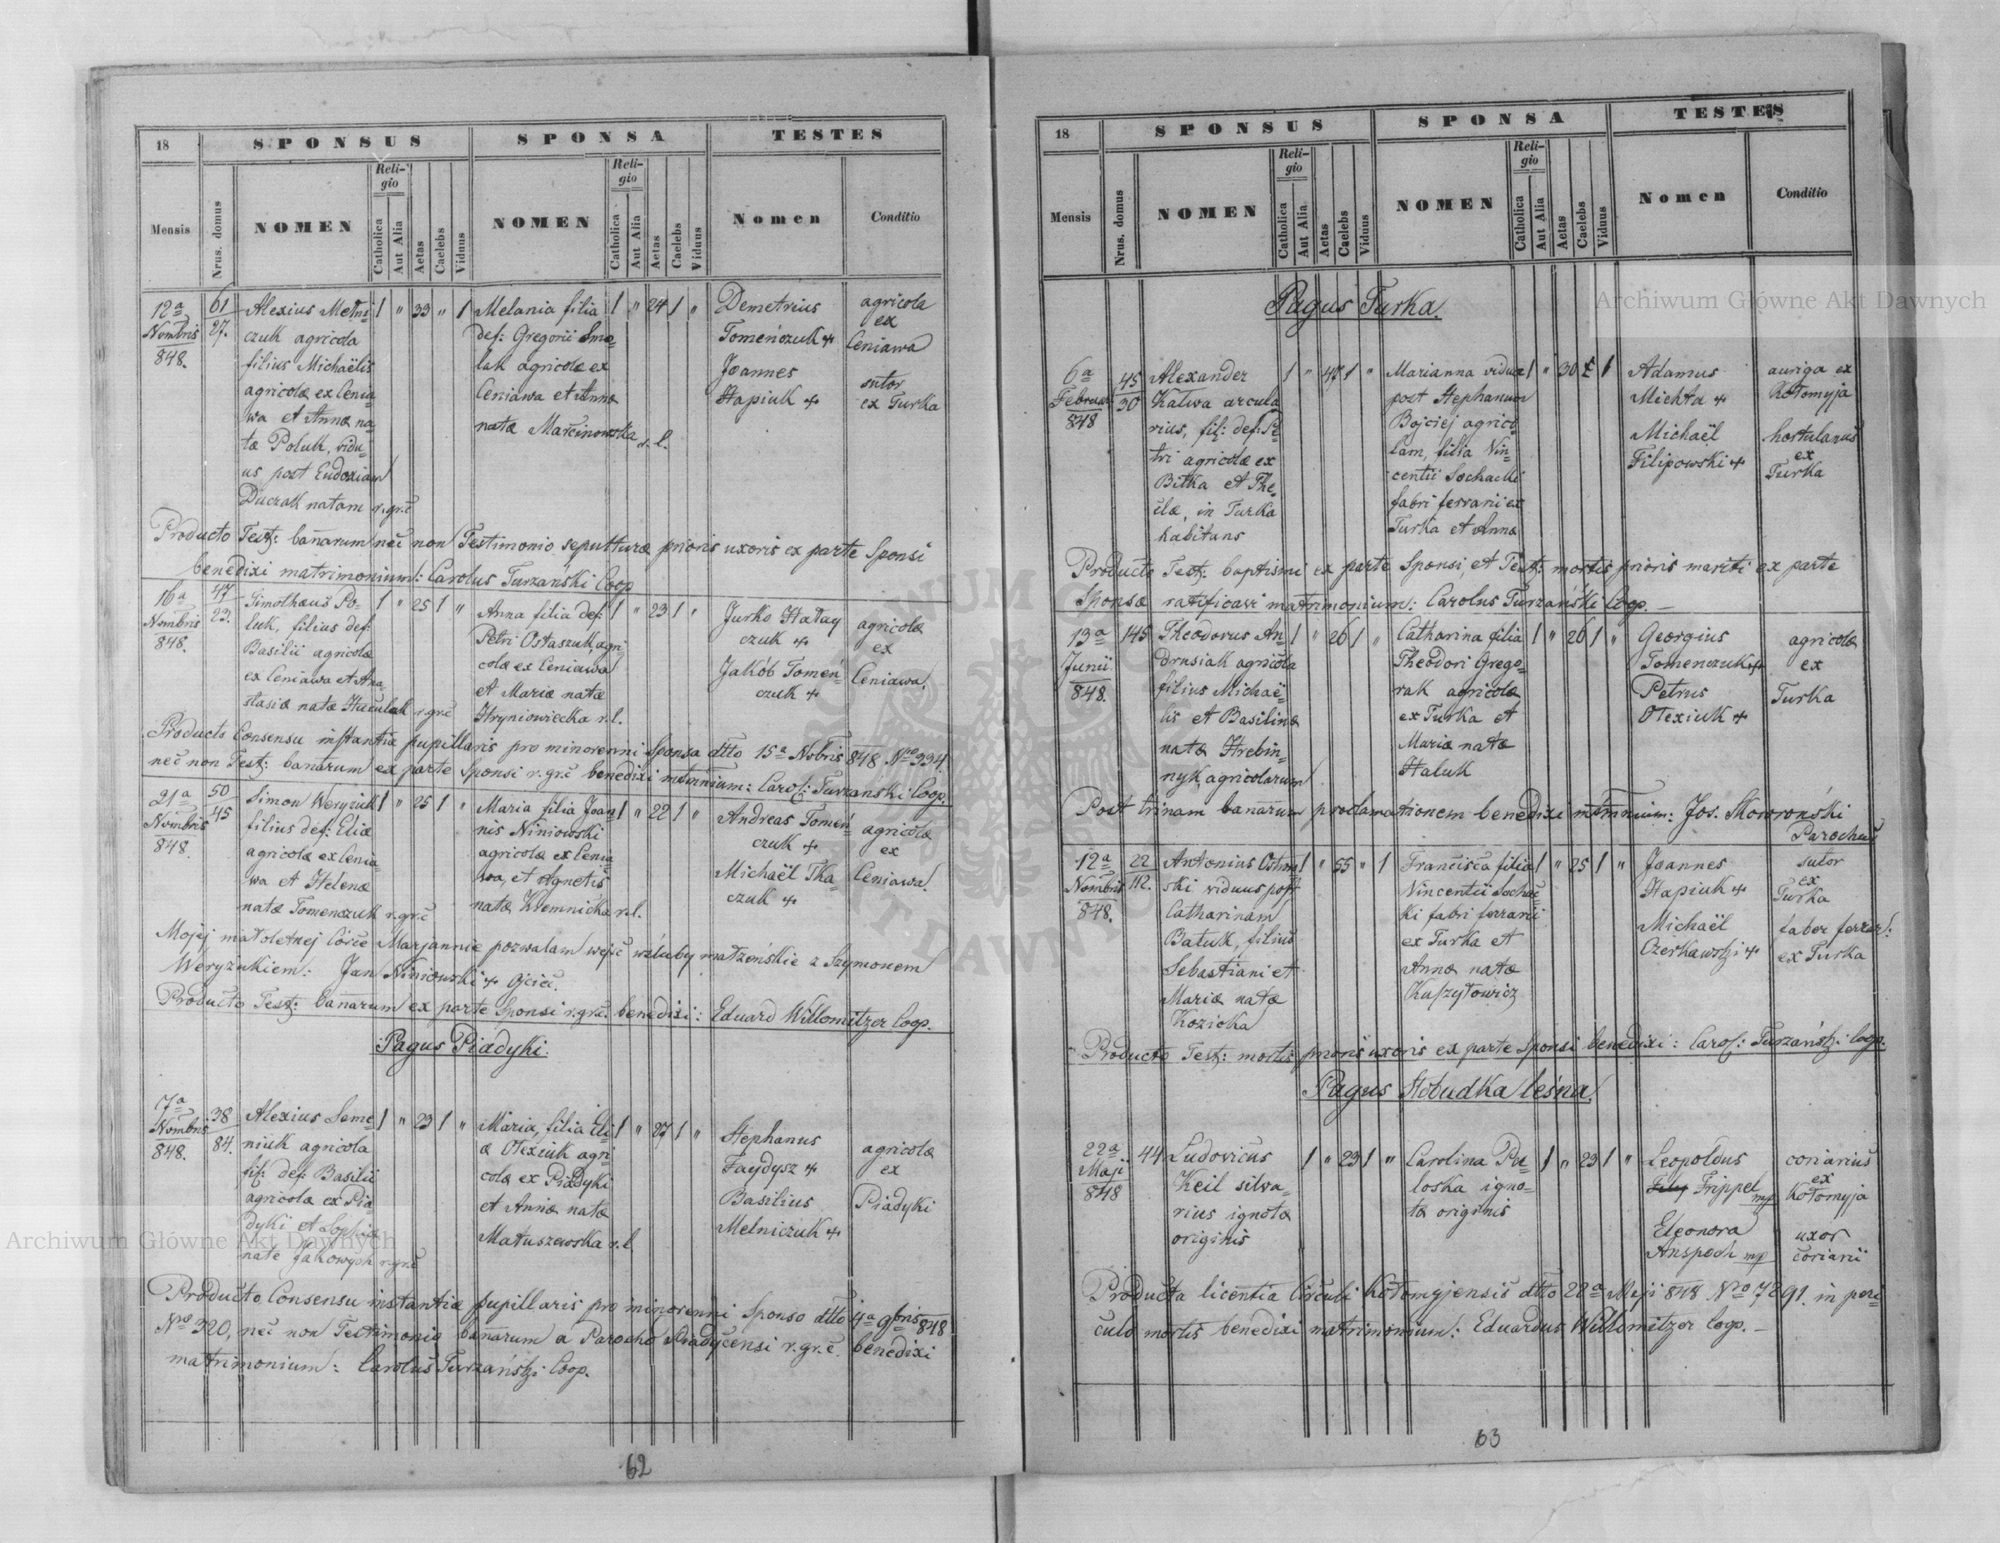 18
SPONSUS
SPONSA
TESTES
Mensis
Nrus. domus
NOMEN
Religio
Catholica
Aut Alia
Aetas
Caelebs
Viduus
NOMEN
Religio
Catholica
Aut Alia
Aetas
Caelebs
Viduus
Nomen
Conditio
12a
Nombris
848.
61
27.
Alexius Melni-
czuk agricola
filius Michaëlis
agricolæ ex Cenia-
wa et Annæ na-
tæ Poluk, vidu-
us post Eudoxiam
Duczak natam r.gr.č
1 " 33 " 1
Melania filia
def: Gregorii Smo-
lak agricolæ ex
Ceniawa et Annæ
natæ Marčinowska r.l.
1 " 24 1 "
Demetrius
Tomenczuk +
Joannes
Hapiuk +
agricola
ex
Ceniawa
sutor
ex Turka
Producto Test: banarum neč non Testimonio sepulturæ prioris uxoris ex parte Sponsi
benedixi matrimonium: Carolus Turzański Coop
16a
Nombris
848.
47
23.
Timotheus Po-
luk, filius def:
Basilii agricolæ
ex Ceniawa et Ana-
stasiæ natæ Huculak r.gr.č
1 " 25 1 "
Anna filia def:
Petri Ostaszuk, agri-
colæ ex Ceniawa
et Mariæ natæ
Hryniowiecka r.l.
1 " 23 1 "
Jurko Hałay
czuk +
Jakób Tomeń-
czuk +
agricolæ
ex
Ceniawa.
Producto Consensu instantiæ pupillaris pro minorenni Sponsa dtto 15a Nobris 848 No 334
neč non Test: banarum ex parte Sponsi r.gr.č benedixi mtrmnium: Carol: Turzański Coop.
21a
Nombris
848.
50
45
Simon Weryziuk
filius def: Eliæ
agricolæ ex Cenia-
wa et Helenæ
natæ Tomenczuk r.gr.č
1 " 25 1 "
Maria filia Joan-
nis Niniowski
agricolæ ex Cenia-
wa, et Agnetis
natæ Kłemnička r.l.
1 " 22 1 "
Andreas Tomeń
czuk +
Michaël Tka-
czuk +
agricolæ
ex
Ceniawa.
Mojej małoletnej Córce Marjannie pozwalam wejść w śluby małżeńskie z Szymonem
Weryziukiem: Jan Niniowski + Ojciec.
Producto Test: banarum ex parte Sponsi r.gr.č. benedixi: Eduard Willomitzer Coop.
Pagus Piadyki.
7a
Nombris
848.
38
84.
Alexius Seme-
niuk agricola
fil: def: Basilii
agricolæ ex Pia-
dyki et Sophiæ
natæ Jakowych r.gr.č
1 " 23 1 "
Maria, filia Eli-
æ Olexiuk agri-
colæ ex Piadyki
et Annæ natæ
Matuszewska r.l.
1 " 27 1 "
Stephanus
Faydysz +
Basilius
Melniczuk +
agricolæ
ex
Piadyki
Producto Consensu instantiæ pupillaris pro minorenni Sponso dtto 4a 9bris 848
No 320, neč non Testimonio banarum a Parocho Piadyčensi r.gr.č. benedixi
matrimonium: Carolus Turzański Coop.
62
18
SPONSUS
SPONSA
TESTES
Mensis
Nrus. domus
NOMEN
Religio
Catholica
Aut Alia
Aetas
Caelebs
Viduus
NOMEN
Religio
Catholica
Aut Alia
Aetas
Caelebs
Viduus
Nomen
Conditio
Pagus Turka.
6a
Februar
848
45
30
Alexander
Kalwa arcula-
rius, fil: def: Pe-
tri agricolæ ex
Bitka et The-
člæ, in Turka
habitans
1 " 47 1 "
Marianna vidua
post Stephanum
Bojciej agrico-
lam, filia Vin-
centii Sochacki
fabri ferrarii ex
Turka et Annæ
1 " 30 1
Adamus
Michta +
Michaël
Filipowski +
auriga ex
Kołomyja
hortulanus
ex
Turka
Producto Test: baptismi ex parte Sponsi, et Test: mortis prioris mariti ex parte
Sponsæ ratificavi matrimonium: Carolus Turzański Coop. —
13a
Junii
848.
145
Theodorus An-
drusiak agričola
filius Michaë-
lis et Basilinæ
natæ Hrebin-
nyk, agricolarum
1 " 26 1 "
Catharina filia
Theodori Grego-
rak agricolæ
ex Turka et
Mariæ natæ
Haluk
1 " 26 1 "
Georgius
Tomenczuk +
Petrus
Olexiuk +
agricolæ
ex
Turka
Post trinam banarum proclamationem benedixi mtrmnium: Jos. Skowroński
Parochus
12a
Nombris
848.
22
112.
Antonius Ostrow-
ski viduus post
Catharinam
Bałuk, filius
Sebastiani et
Mariæ natæ
Kozicka
1 " 55 " 1
Francisča filia
Vincentii Sochač-
ki fabri ferrarii
ex Turka et
Annæ natæ
Kuszytowicz
1 " 25 1 "
Joannes
Hapiuk +
Michaël
Czerkawski +
sutor
ex
Turka
faber ferrar:
ex Turka
Producto Test: mortis prioris uxoris ex parte Sponsi benedixi: Carol: Turzański Coop.
Pagus Słobudka leśna.
22a
Maji
848
44
Ludovičus
Keil silva-
rius ignotæ
originis
1 " 23 1 "
Carolina Po-
loska igno-
tæ originis
1 " 23 1 "
Leopoldus
Frippel mp
Eleonora
Anspoch mp
coriarius
ex
Kołomyja
uxor
čoriarii
Producta licentia Circuli Kołomyjensis dtto 22a Maji 848 No 7291. in peri-
čulo mortis benedixi matrimonium: Eduardus Willomitzer Coop. —
63
Archiwum Główne Akt Dawnych
Archiwum Główne Akt Dawnych